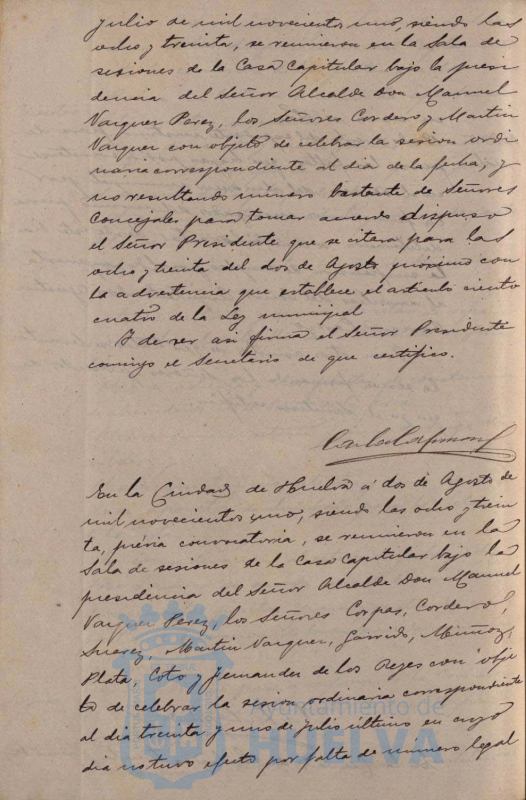 julio de mil novecientos uno, siendo las
ocho y treinta, se reunieron en la Sala de
sesiones de la Casa Capitular bajo la presi
dencia del Señor Alcalde Don Manuel
Vazquez Perez, los Señores Cordero y Martin
Vazquez con objeto de celebrar la sesion ordi
naria correspondiente al dia de la fecha, y
no resultando número bastante de Señores
Concejales para tomar acuerdo dispuso
el Señor Presidente que se citara para las
ocho y treinta del dos de Agosto próximo con
la advertencia que establece el articulo ciento
cuatro de la Ley municipal
Y de ser asi firma el Señor Presidente
conmigo el Secretario de que certifico.
En la Ciudad de Huelva á dos de Agosto de
mil novecientos uno, siendo las ocho y trein
ta, prévia convocatoria, se reunieron en la
Sala de sesiones de la Casa Capitular bajo la
presidencia del Señor Alcalde Don Manuel
Vazquez Perez, los Señores Corpas, Cordero,
Suarez, Martin Vazquez, Garrido, Muñoz,
Plata, Coto y Fernandez de los Reyes con obje
to de celebrar la sesion ordinaria correspondiente
al dia treinta y uno de julio último en cuyo
dia no tuvo efecto por falta de número legal
Ayuntamiento de
HUELVA